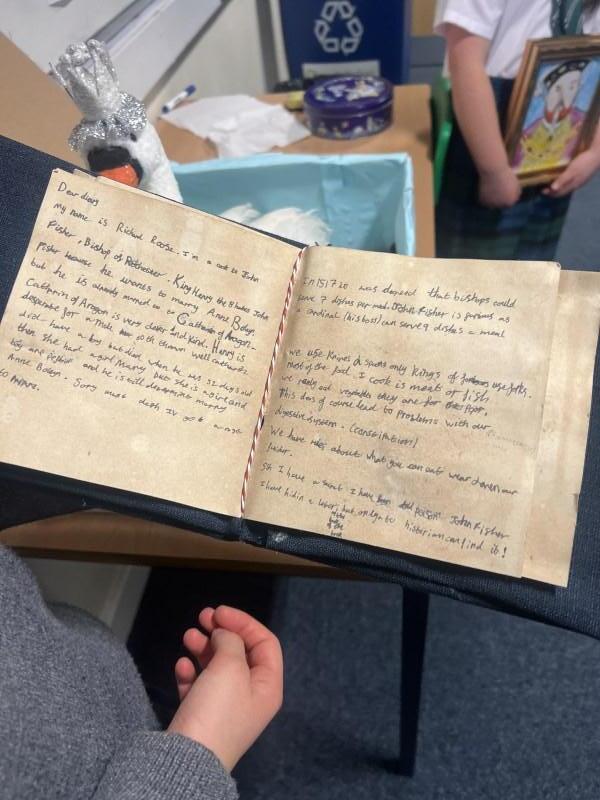 Dear diary
my name is Richard Roose. I'm a cook to John
Fisher, Bishop of Rochester. King Henry the 8 hates John
Fisher because he wants to marry Anne Boleyn
but he is already married to Catharin of Aragon.
Catharin of Aragon is very clever and kind. Henry is
desperate for a male both thomen well catharin
did have a boy but died when he was 52 days old
then she had a girl Marry but she is a girl and
boy are better and he is still desperate marry
Anne Boleyn. Sory must dash Iv got a
to prepare.
In 1517 it was decreed that bishops could
serve 7 dishes per meal. John Fisher is famous as
a cardinal (his boss) can serve 9 dishes a meal
we use Knives & spoons only kings of use forks.
most of the food I cook is meat or fish
we rarely eat vegetables they are for the poor,
This does of course lead to problems with our
digestive system. (constipation)
We have rules about what you can eat wear down on our
faider.
Sh I have a secret I have poison John Fisher
I have hidin a leter in but only a historian can find it!
at the
of the
book